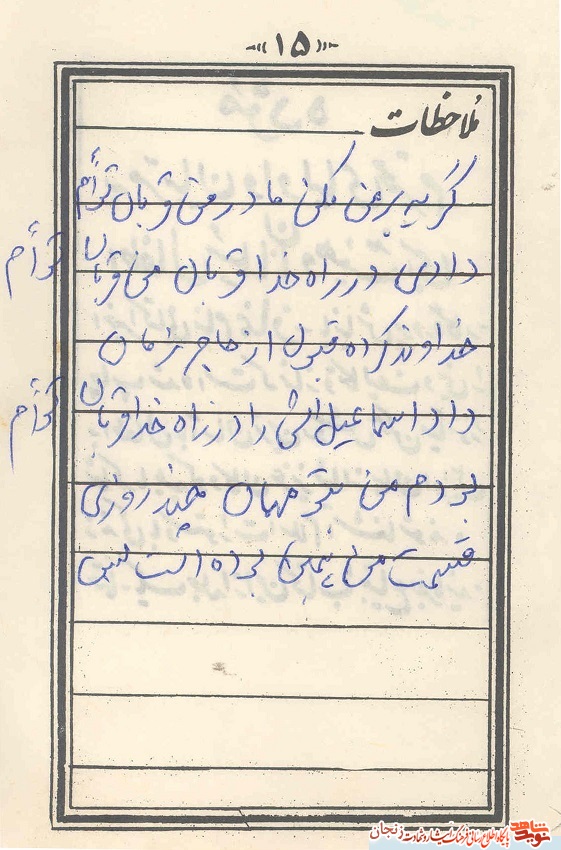 -«۱۵»-
ملاحظات
گریه بر من مکن مادر من قربان توأم
دادی در راه خدا قربان من قربان توأم
خداوند کرده قبول از هاجر زمان
داد اسماعیلش را در راه خدا قربان توأم
بودم من بتو مهمان چند روزی
قسمت من همین بوده است بس
نوید شاهد
پایگاه اطلاع رسانی فرهنگ ایثار و شهادت زنجان